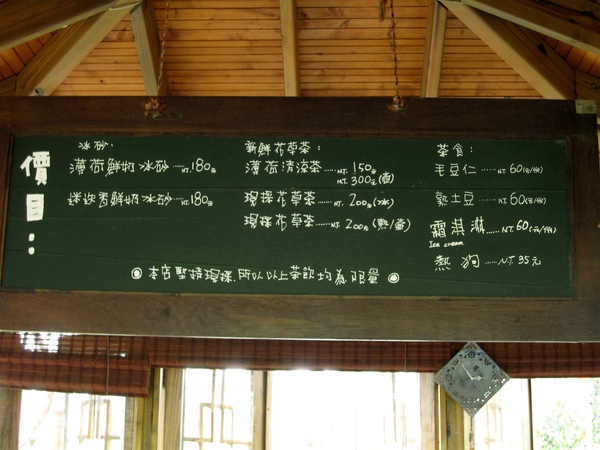 價目:
冰砂:
薄荷鮮奶冰砂......NT.180元
迷迭香鮮奶冰砂......NT.180元
新鮮花草茶:
薄荷清涼茶......NT.150元
NT.300元(壺)
現採花草茶......NT.200元(冰)
現採花草茶......NT.200元(熱/壺)
茶食:
毛豆仁......NT.60(元/份)
熟土豆......NT.60(元/份)
霜淇淋......NT.60(元/份)
Ice cream
熱狗......NT.35元
◎本店堅持現採.所以以上茶飲均為限量◎